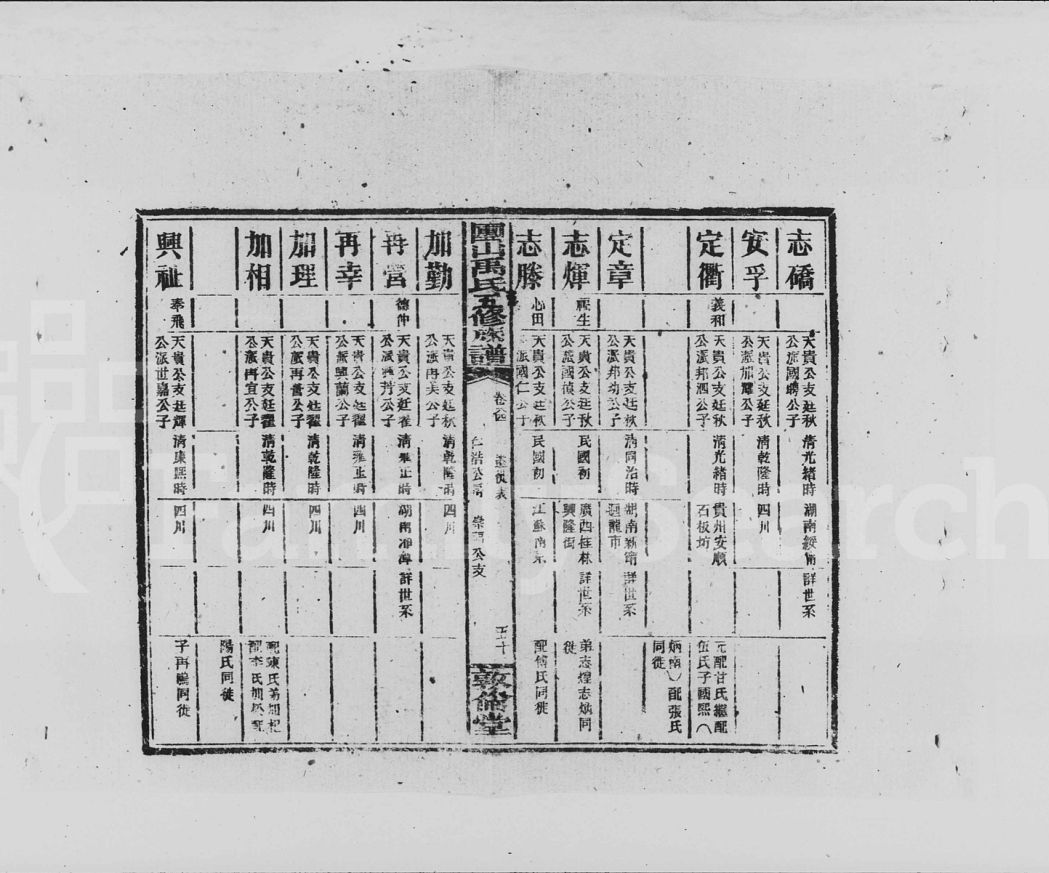 志礄
天貴公支廷秋
公派國聘公子
清光緒時
湖南綏甯
詳世系
安孚
天貴公支廷秋
公派加耀公子
清乾隆時
四川
定衢
義和
天貴公支廷秋
公派邦泗公子
清光緒時
貴州安順
石板坊
元配甘氏繼配
伍氏子國熙
炳南 配張氏
同徙
定章
天貴公支廷秋
清同治時
湖南新甯
龍市
詳世系
志煇
天貴公支廷秋
公派國偵公子
民國初
廣西桂林
興隆街
詳世系
弟志煌志炳同
徙
志滕
心田
天貴公支廷秋
公派國仁公子
民國初
江蘇南京
配傅氏同徙
禹氏五修族譜
敦倫堂
加勤
天貴公支廷秋
公派再美公子
清乾隆時
四川
再營
德仲
天貴公支廷翟
公派興芳公子
清雍正時
詳世系
再幸
天貴公支廷翟
公派興蘭公子
清雍正時
四川
加理
天貴公支廷翟
公派再營公子
清乾隆時
四川
加相
天貴公支廷翟
公派再宜公子
清乾隆時
四川
陽氏同徙
興祉
奉飛
天貴公支廷輝
公派世嘉公子
清康熙時
四川
子再鵬同徙
FamilySearch